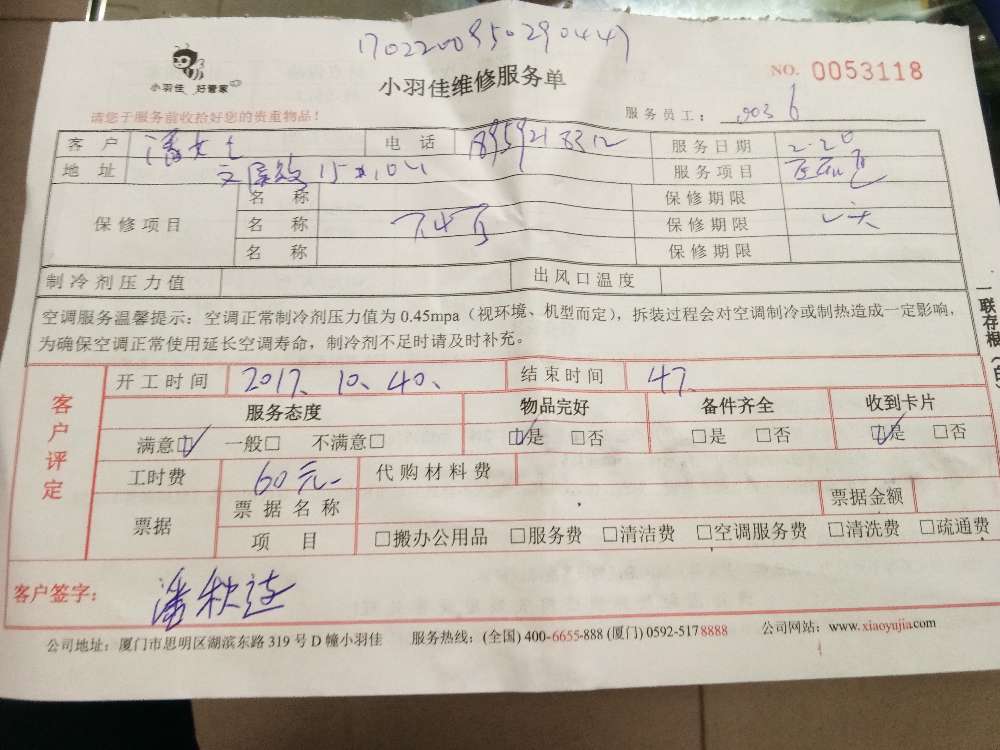 小羽佳 好管家
小羽佳维修服务单
NO. 0053118
请您于服务前收拾好您的贵重物品！
服务员工：
客户 潘女士 电话 服务日期 2.20
地址 服务项目
保修项目 名称 保修期限
名称 保修期限
名称 保修期限
制冷剂压力值 出风口温度
空调服务温馨提示：空调正常制冷剂压力值为 0.45mpa（视环境、机型而定），拆装过程会对空调制冷或制热造成一定影响，
为确保空调正常使用延长空调寿命，制冷剂不足时请及时补充。
客户评定 开工时间 2017、10、40、 结束时间 47.
服务态度 物品完好 备件齐全 收到卡片
满意☑ 一般□ 不满意□ ☑是 □否 □是 □否 ☑是 □否
工时费 60元 代购材料费
票据 票据名称 票据金额
项目 □搬办公用品 □服务费 □清洁费 □空调服务费 □清洗费 □疏通费
客户签字：
公司地址：厦门市思明区湖滨东路 319 号 D 幢小羽佳 服务热线：(全国) 400-6655-888 (厦门) 0592-5178888 公司网站：www.xiaoyujia.com
一联存根